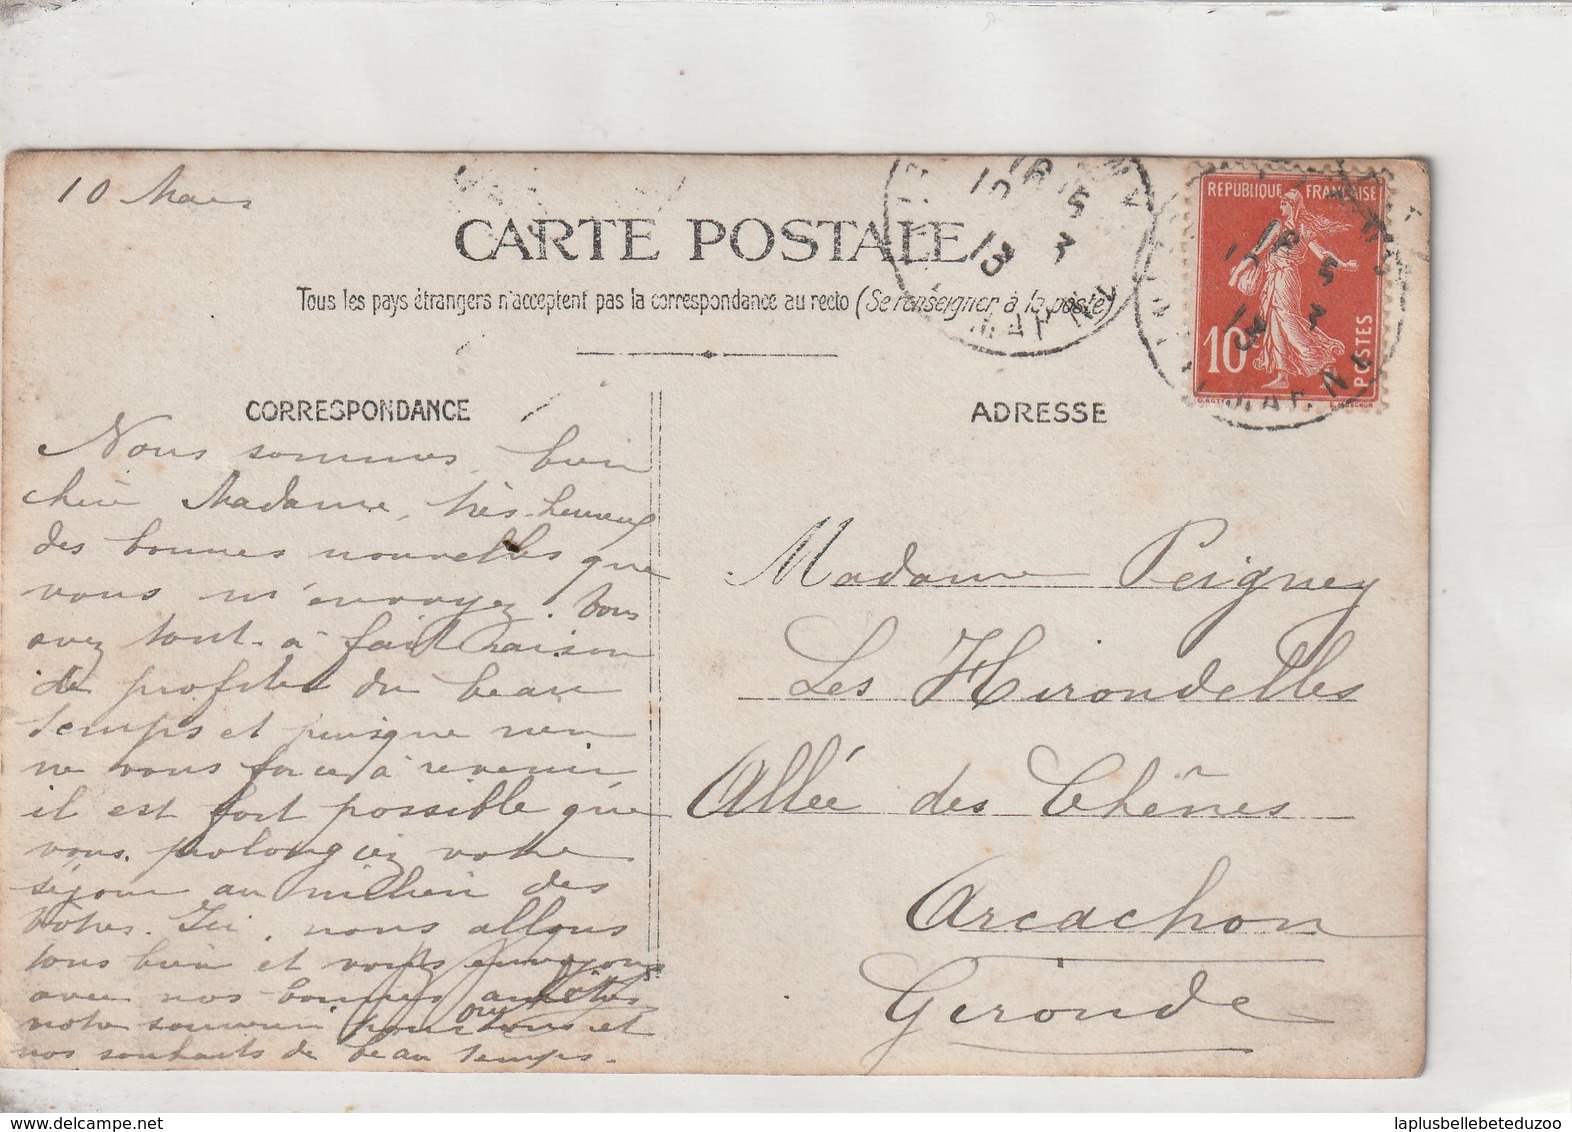 10 Mars
CARTE POSTALE
Tous les pays étrangers n'acceptent pas la correspondance au recto (Se renseigner à la poste)
CORRESPONDANCE
Nous sommes, bien
chère Madame, très heureux
des bonnes nouvelles que
vous m'envoyez. Vous
avez tout à fait raison
de profiter du beau
temps et puisque rien
ne vous force à revenir
il est fort possible que
vous prolongiez votre
séjour au milieu des
vôtres. Ici, nous allons
tous bien et vous envoyons
avec nos bonnes amitiés
notre souvenir pour tous et
nos souhaits de beau temps.
ADRESSE
Madame Peigney
Les Hirondelles
Allée des Chênes
Arcachon
Gironde
REPUBLIQUE FRANÇAISE
10
POSTES
16 15
5 3
13
MARNE
16 15
5 3
13
MARNE
laplusbellebeteduzoo